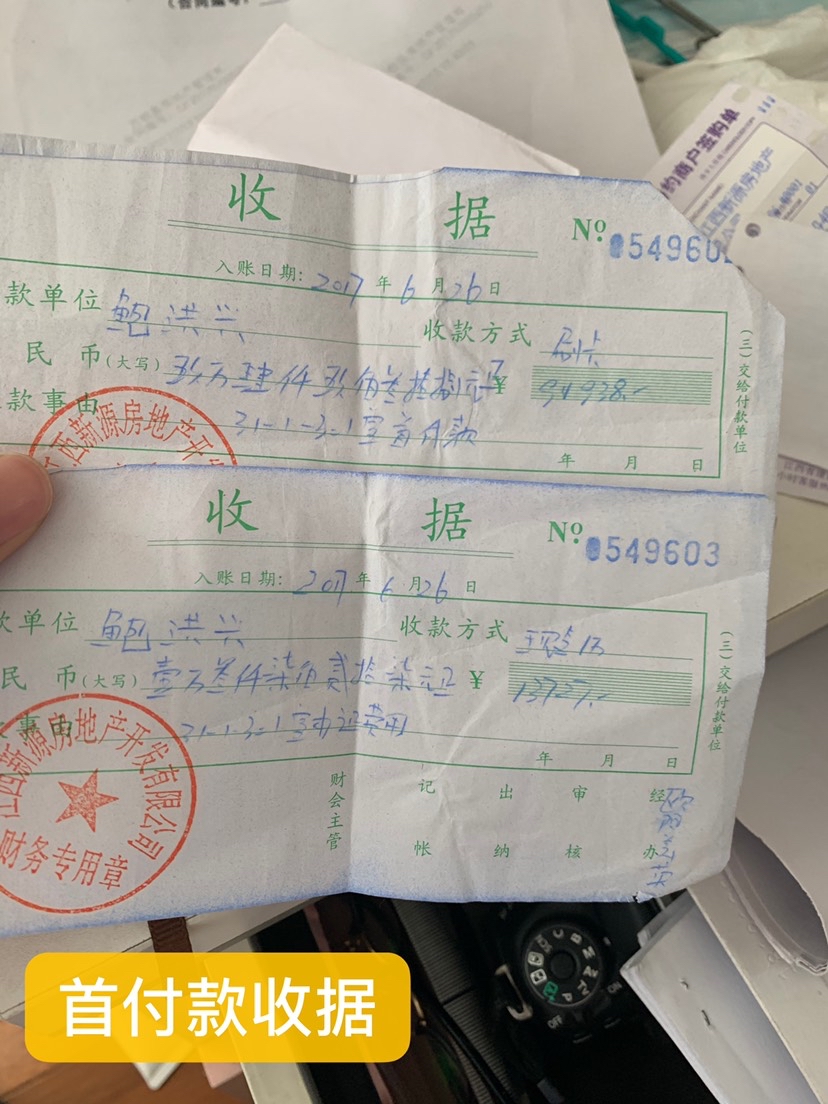 约商户签购单
江西新源房地产
收 据
Nº 054960
入账日期: 2017 年 6 月 26 日
款单位 鲍洪兴 收款方式 刷卡
民 币(大写) 玖万肆仟玖佰叁拾捌元正 ¥ 94938.-
款事由 31-1-3-1室首付款
年 月 日
(三)交给付款单位
西新源房地产开发
收 据
Nº 0549603
入账日期: 2017 年 6 月 26 日
款单位 鲍洪兴 收款方式
民 币(大写) 壹万叁仟柒佰贰拾柒元正 ¥ 13727.-
事由 31-1-3-1室办证费用
年 月 日
(三)交给付款单位
江西新源房地产开发有限公司
财务专用章
财会主管 记帐 出纳 审核 经办
OFF
ON
首付款收据